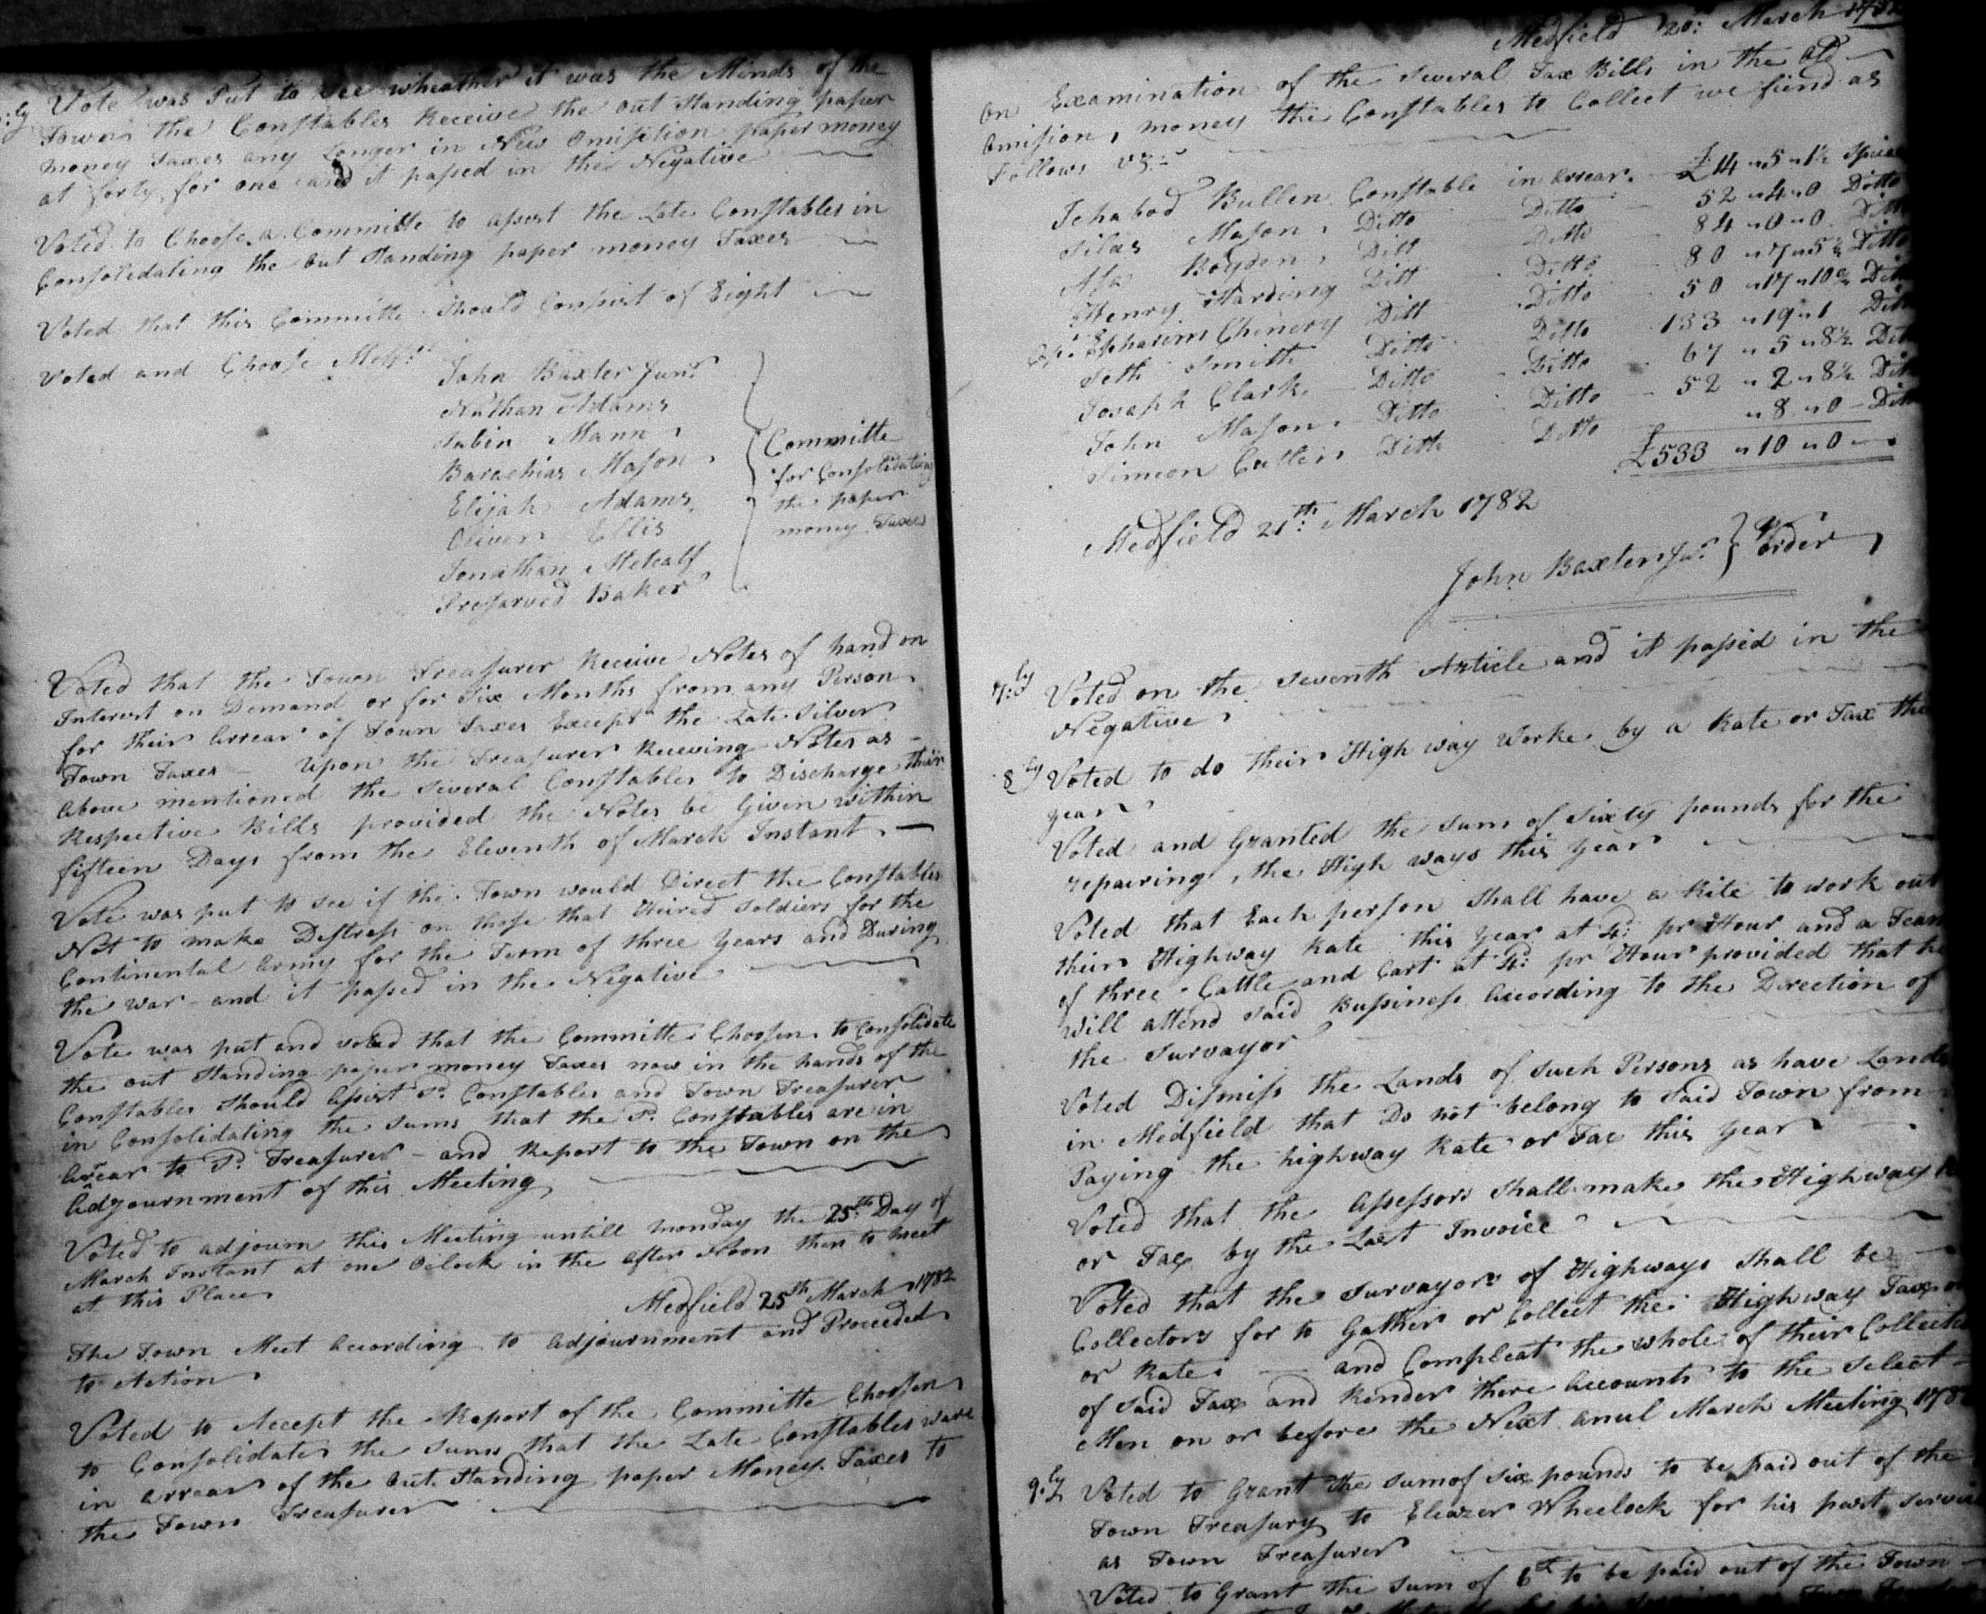 :ly Vote was Put to See wheather it was the Minds of the
Town the Constables Receive the out Standing paper
money Taxes any Longer in New Omission paper money
at forty for one and it passed in the Negative
Voted to Choose a Committe to assist the Late Constables in
Consoledating the out Standing paper money Taxes
Voted that this Committe Should Consist of Eight
Voted and Choose Messrs
John Baxter Junr
Nathan Adams
Sabin Mann
Barachias Mason
Elijah Adams
Oliver Ellis
Jonathan Metcalf
Preserved Baker
Committe
for Consolidating
the paper
money Taxes
Voted that the Town Treasurer Receive Notes of hand on
Interest on Demand or for Six Months from any Person
for their Arrear of Town Taxes Except the Late Silver
Town Taxes – Upon the Treasurer Receiving Notes as
above mentioned the Several Constables to Discharge their
Respective Bills provided the Notes be Given within
fifteen Days from the Eleventh of March Instant
Vote was put to see if the Town would Direct the Constables
Not to make Distress on those that Heired Soldiers for the
Continental Army for the Term of three years and During
the war – and it passed in the Negative
Vote was put and voted that the Committe Choosen to Consolidate
the out Standing paper money Taxes now in the hands of the
Constables Should Assist Sd. Constables and Town Treasurer
in Consolidating the Sums that the Sd. Constables are in
Arrear to Sd. Treasurer – and Report to the Town on the
Adjournment of this Meeting
Voted to adjourn this Meeting untill monday the 25th Day of
March Instant at one Oclock in the after Noon then to meet
at this Place
Medfield 25th March 1782
The Town Meet According to adjournment and Proceeded
to Action
Voted to Accept the Report of the Committe Choosen
to Consolidate the Sums that the Late Constables ware
in arrear of the out Standing paper Money Taxes to
the Town Treasurer
Medfield 20: March 1782
On Examination of the Several Tax Bills in the old
Omision, money the Constables to Collect we fiend as
Follows vz:
Ichabod Bullen Constable in Arrear £14 " 5 " 1½
Silas Mason Ditto Ditto 52 " 4 " 0 Ditto
Asa Boyden Ditt Ditto 84 " 0 " 0 Ditto
Henry Harding Ditt Ditto 80 " 17 " 5½ Ditto
Ephraim Chinery Ditt Ditto 50 " 17 " 10½ Ditto
Seth Smith Ditto Ditto 133 " 19 " 1 Ditto
Joseph Clark Ditto Ditto 67 " 5 " 8½ Ditto
John Mason Ditto Ditto 52 " 2 " 8½ Ditto
Simeon Cutler Ditto Ditto " 8 " 0 – Ditto
£533 " 10 " 0
Medfield 21th: March 1782
John Baxter Jur. } pr order
7:ly Voted on the Seventh Article and it passed in the
Negative
8ly Voted to do their High way Worke by a Rate or Tax the
year
Voted and Granted the Sum of Sixty pounds for the
repairing the High ways this year
Voted that Each person Shall have a Rite to work out
their Highway Rate this year at 4d: pr Hour and a Team
of three Cattle and Cart at 4d: pr Hour provided that he
will attend said Bussiness According to the Direction of
the Survayor
Voted Dismiss the Lands of Such Persons as have Lands
in Medfield that Do not belong to Said Town from
Paying the highway Rate or Tax this year
Voted that the Assessors Shall make the Highway
or Tax by the Last Invoice
Voted that the Survayors of Highways Shall be
Collectors for to Gather or Collect the Highway Tax
or Rate – and Compleat the whole of their Collection
of Said Tax and Render there Accounts to the Select
Men on or before the Next anul March Meeting
9:ly Voted to Grant the Sum of Six pounds to be paid out of the
Town Treasury to Eleazer Wheelock for his past Service
as Town Treasurer
Voted to Grant the Sum of 6£ to be paid out of the Town